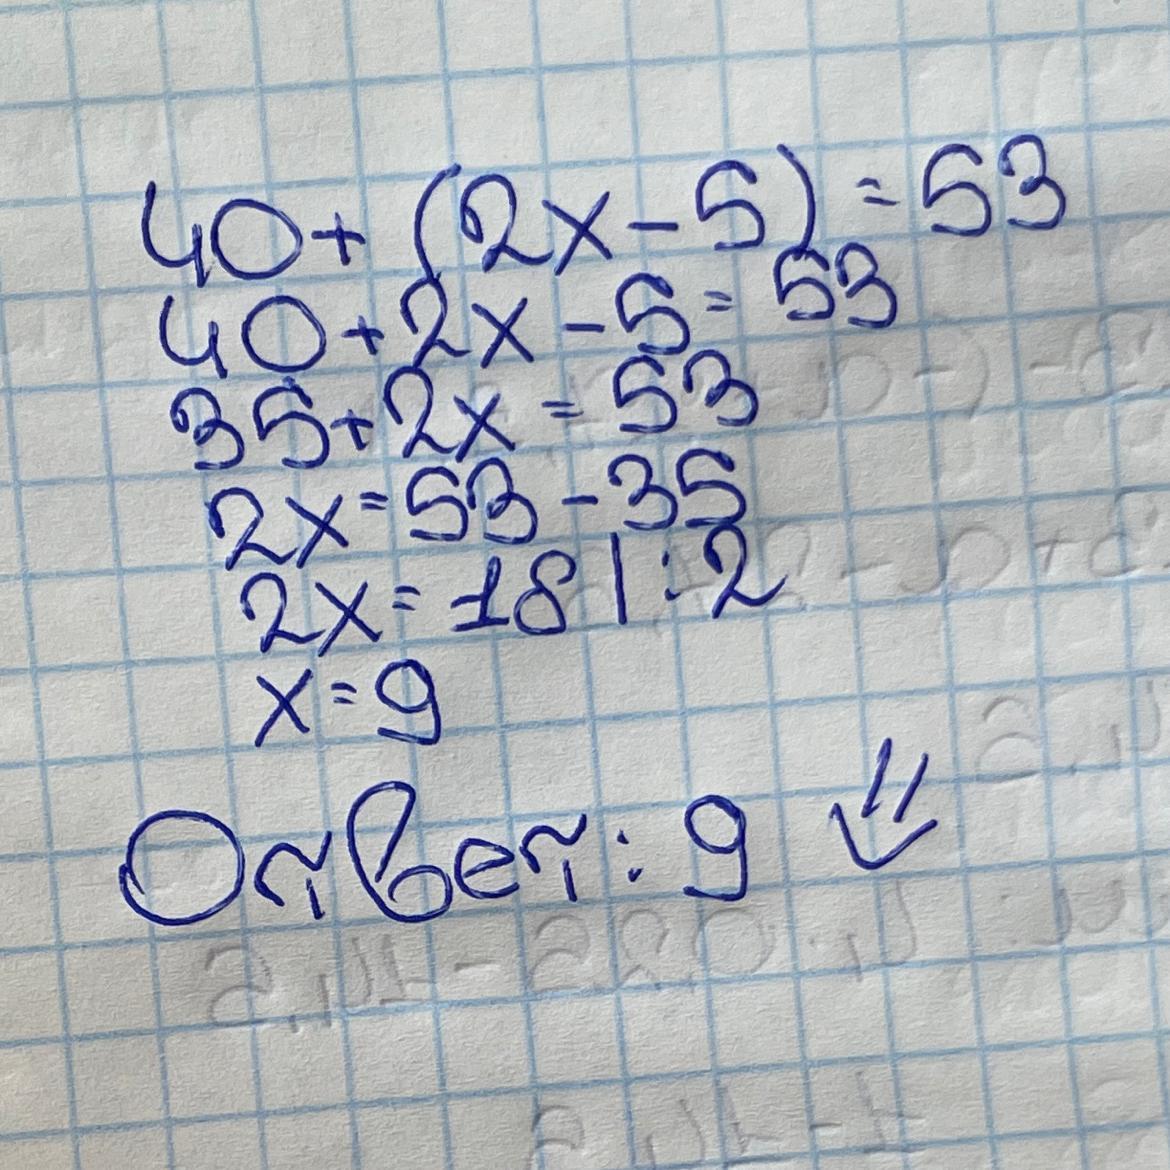 40+ (2x-5) = 53
40+2x-5= 53
35+2x = 53
2x=53-35
2x= 18 |:2
x=9
Ответ: 9